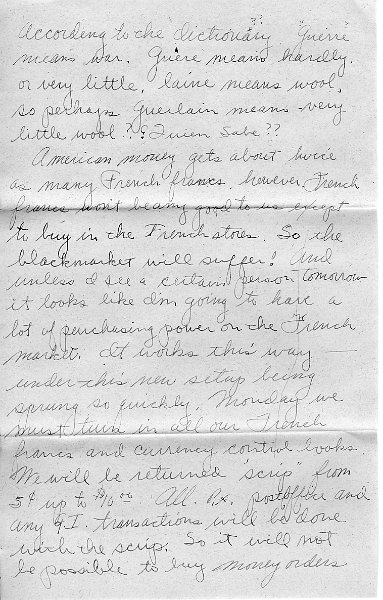 According to the dictionary Guerre
means war. Guère means hardly,
or very little, laine means wool,
so perhaps Guerlain means very
little wool??? Quien Sabe??
American money gets about twice
as many French francs, however, French
francs won't be any good to us except
to buy in the French stores. So the
blackmarket will suffer! And
unless I see a certain person tomorrow
it looks like I'm going to have a
lot of purchasing power on the French
market. It works this way —
under this new setup being
sprung so quickly, Monday we
must turn in all our French
francs and currency control books.
We will be returned "scrip" from
5¢ up to $10.00. All P.x. postoffice and
any G.I. transactions will be done
with the scrip. So it will not
be possible to buy money orders